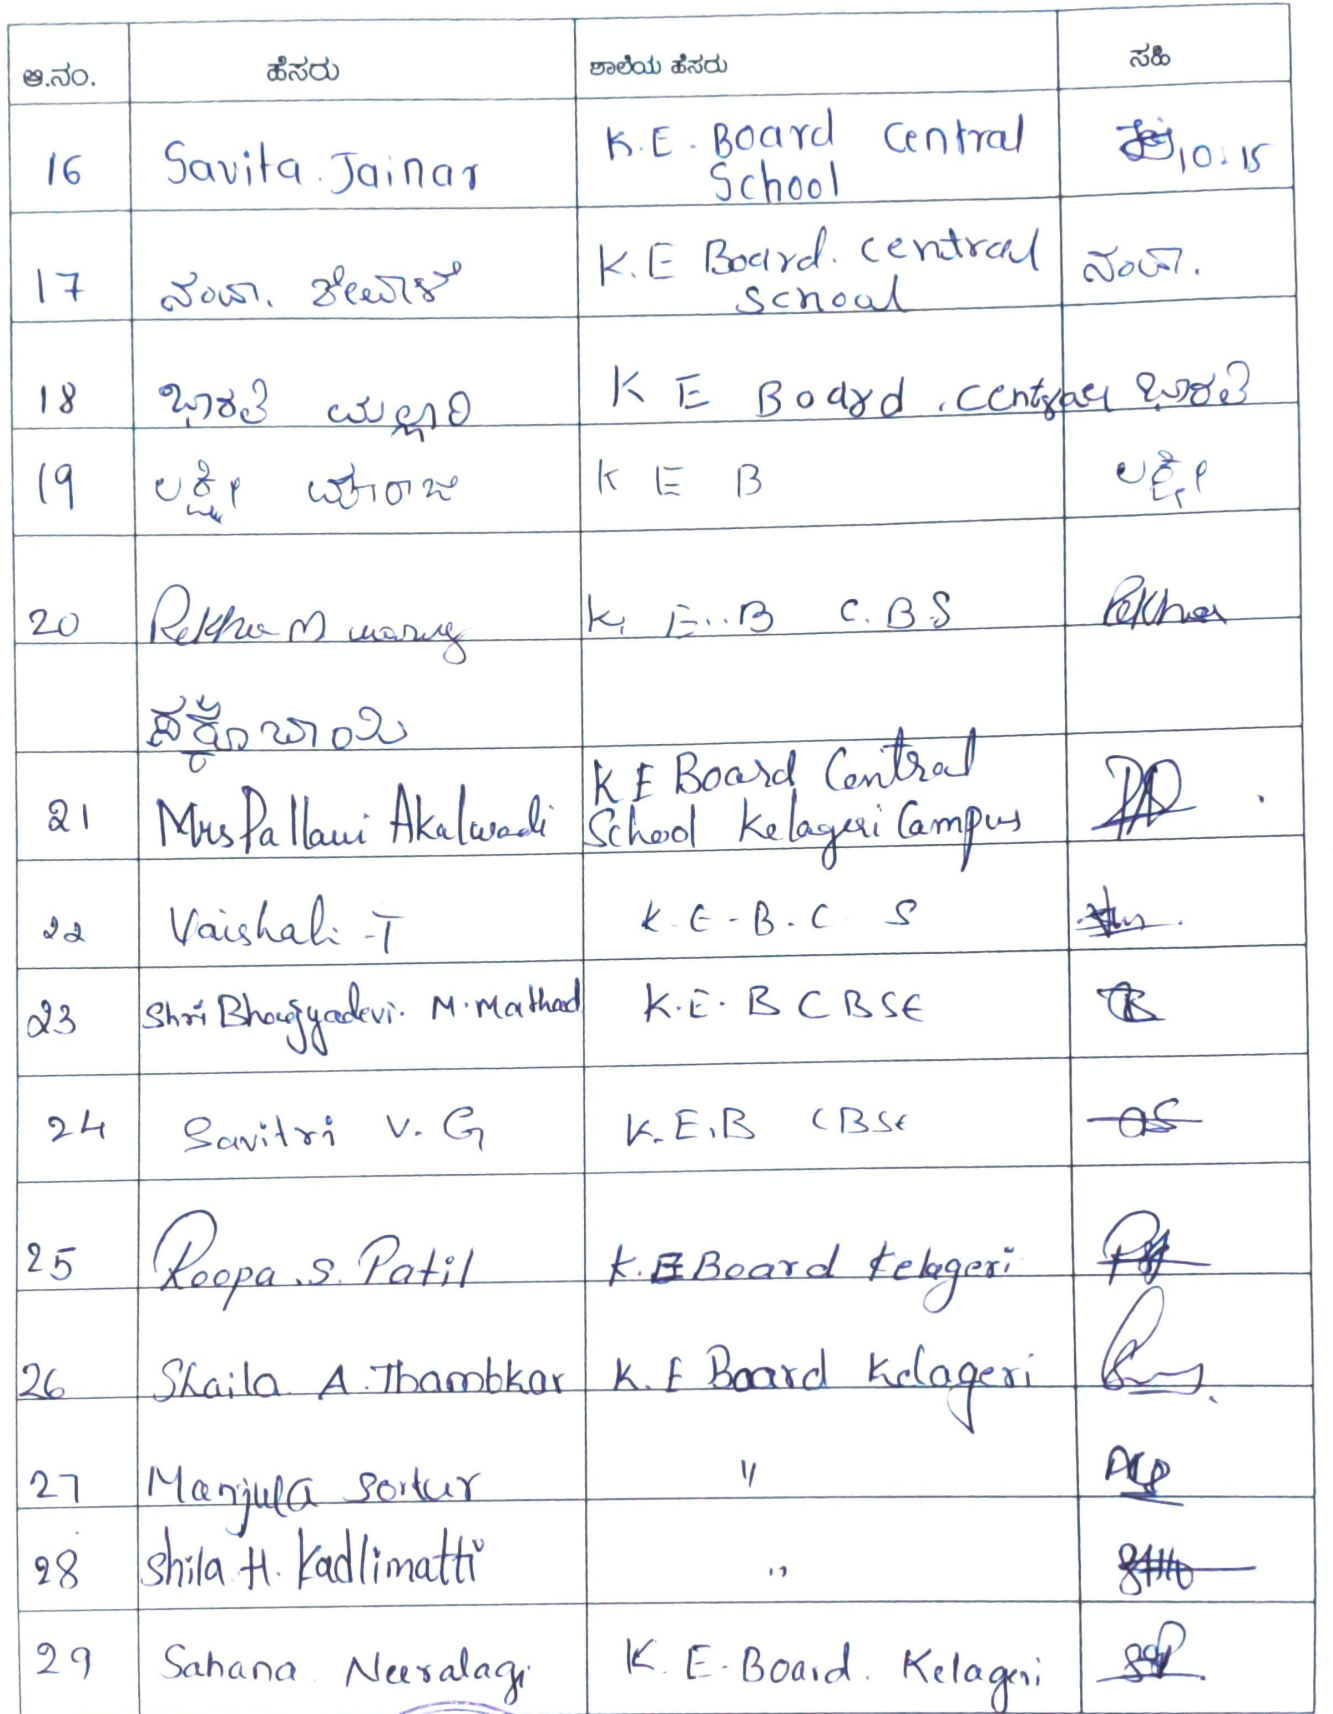 ಅ.ನಂ. ಹೆಸರು ಶಾಲೆಯ ಹೆಸರು ಸಹಿ
16 Savita. Jainar K.E. Board Central School 10.15
17 ನಂದಾ. K.E Board. central school ನಂದಾ.
18 ಭಾರತಿ ಮಲ್ಲಾರಿ K E Board. central ಭಾರತಿ
19 ಲಕ್ಷ್ಮೀ K E B ಲಕ್ಷ್ಮೀ
20 Rekha M K. E..B C.B.S Rekha
21 Mrs Pallavi Akalwadi K E Board Central School Kelageri Campus
22 Vaishali T K.E-B.C S
23 Shri Bhagyadevi. M. Mathad K.E.B CBSE
24 Savitri V. G K.E.B CBSE
25 Roopa.S. Patil K.E Board Kelageri
26 Shaila A. Thambkar K.E Board Kelageri
27 Manjula Sortur "
28 Shila H. Kadlimatti "
29 Sahana Neeralagi K.E-Board. Kelageri